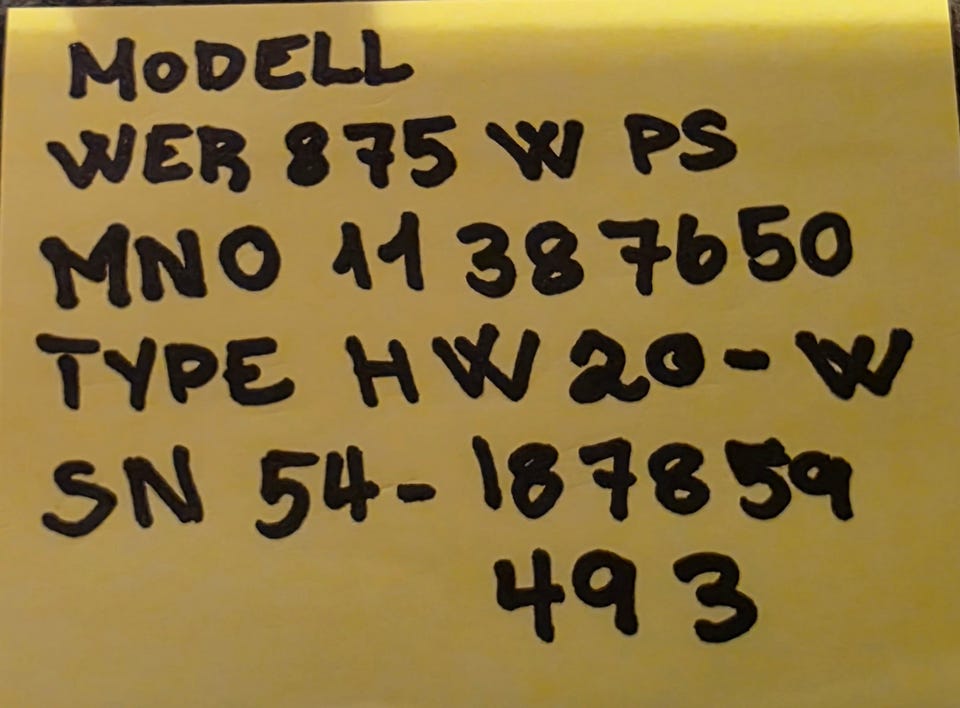 MODELL
WER 875 W PS
MNO 11387650
TYPE HW20-W
SN 54-187859
493